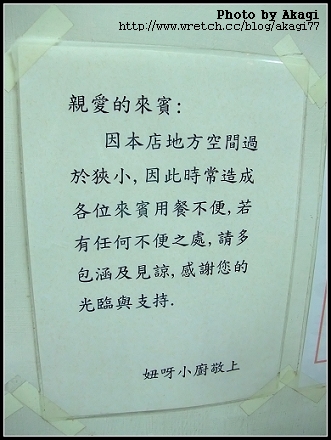 Photo by Akagi
http://www.wretch.cc/blog/akagi77
親愛的來賓:
因本店地方空間過
於狹小,因此時常造成
各位來賓用餐不便,若
有任何不便之處,請多
包涵及見諒,感謝您的
光臨與支持.
妞呀小廚敬上